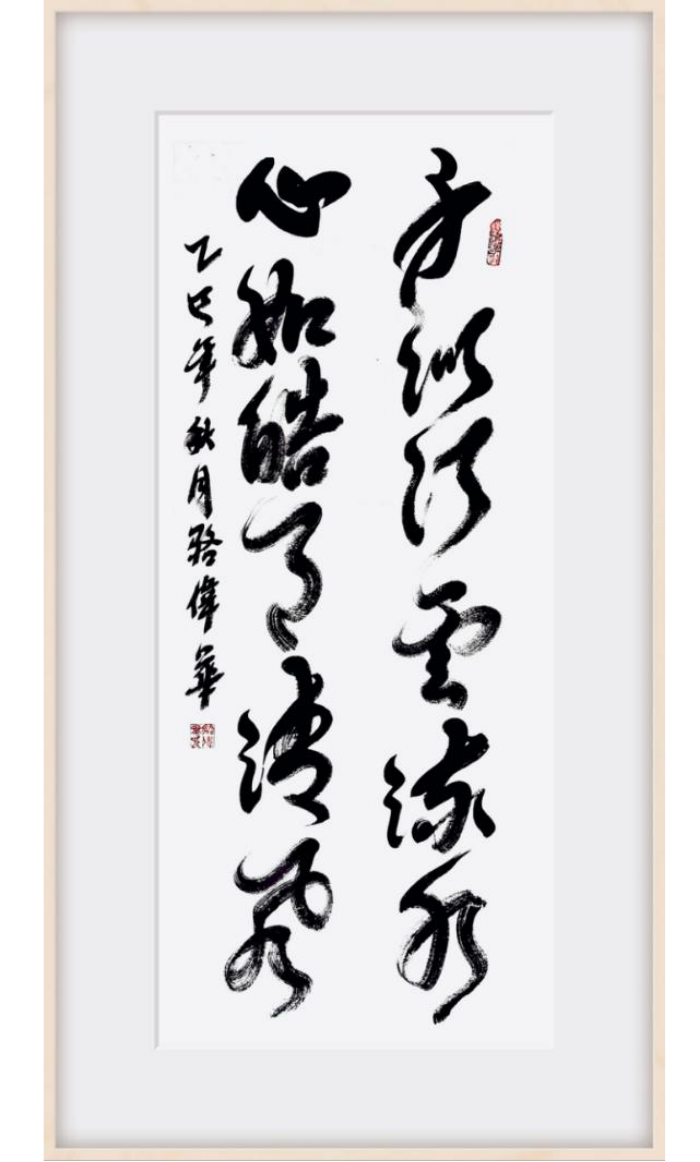 身似行云流水
心如皓月清风
乙巳年秋月駱偉華